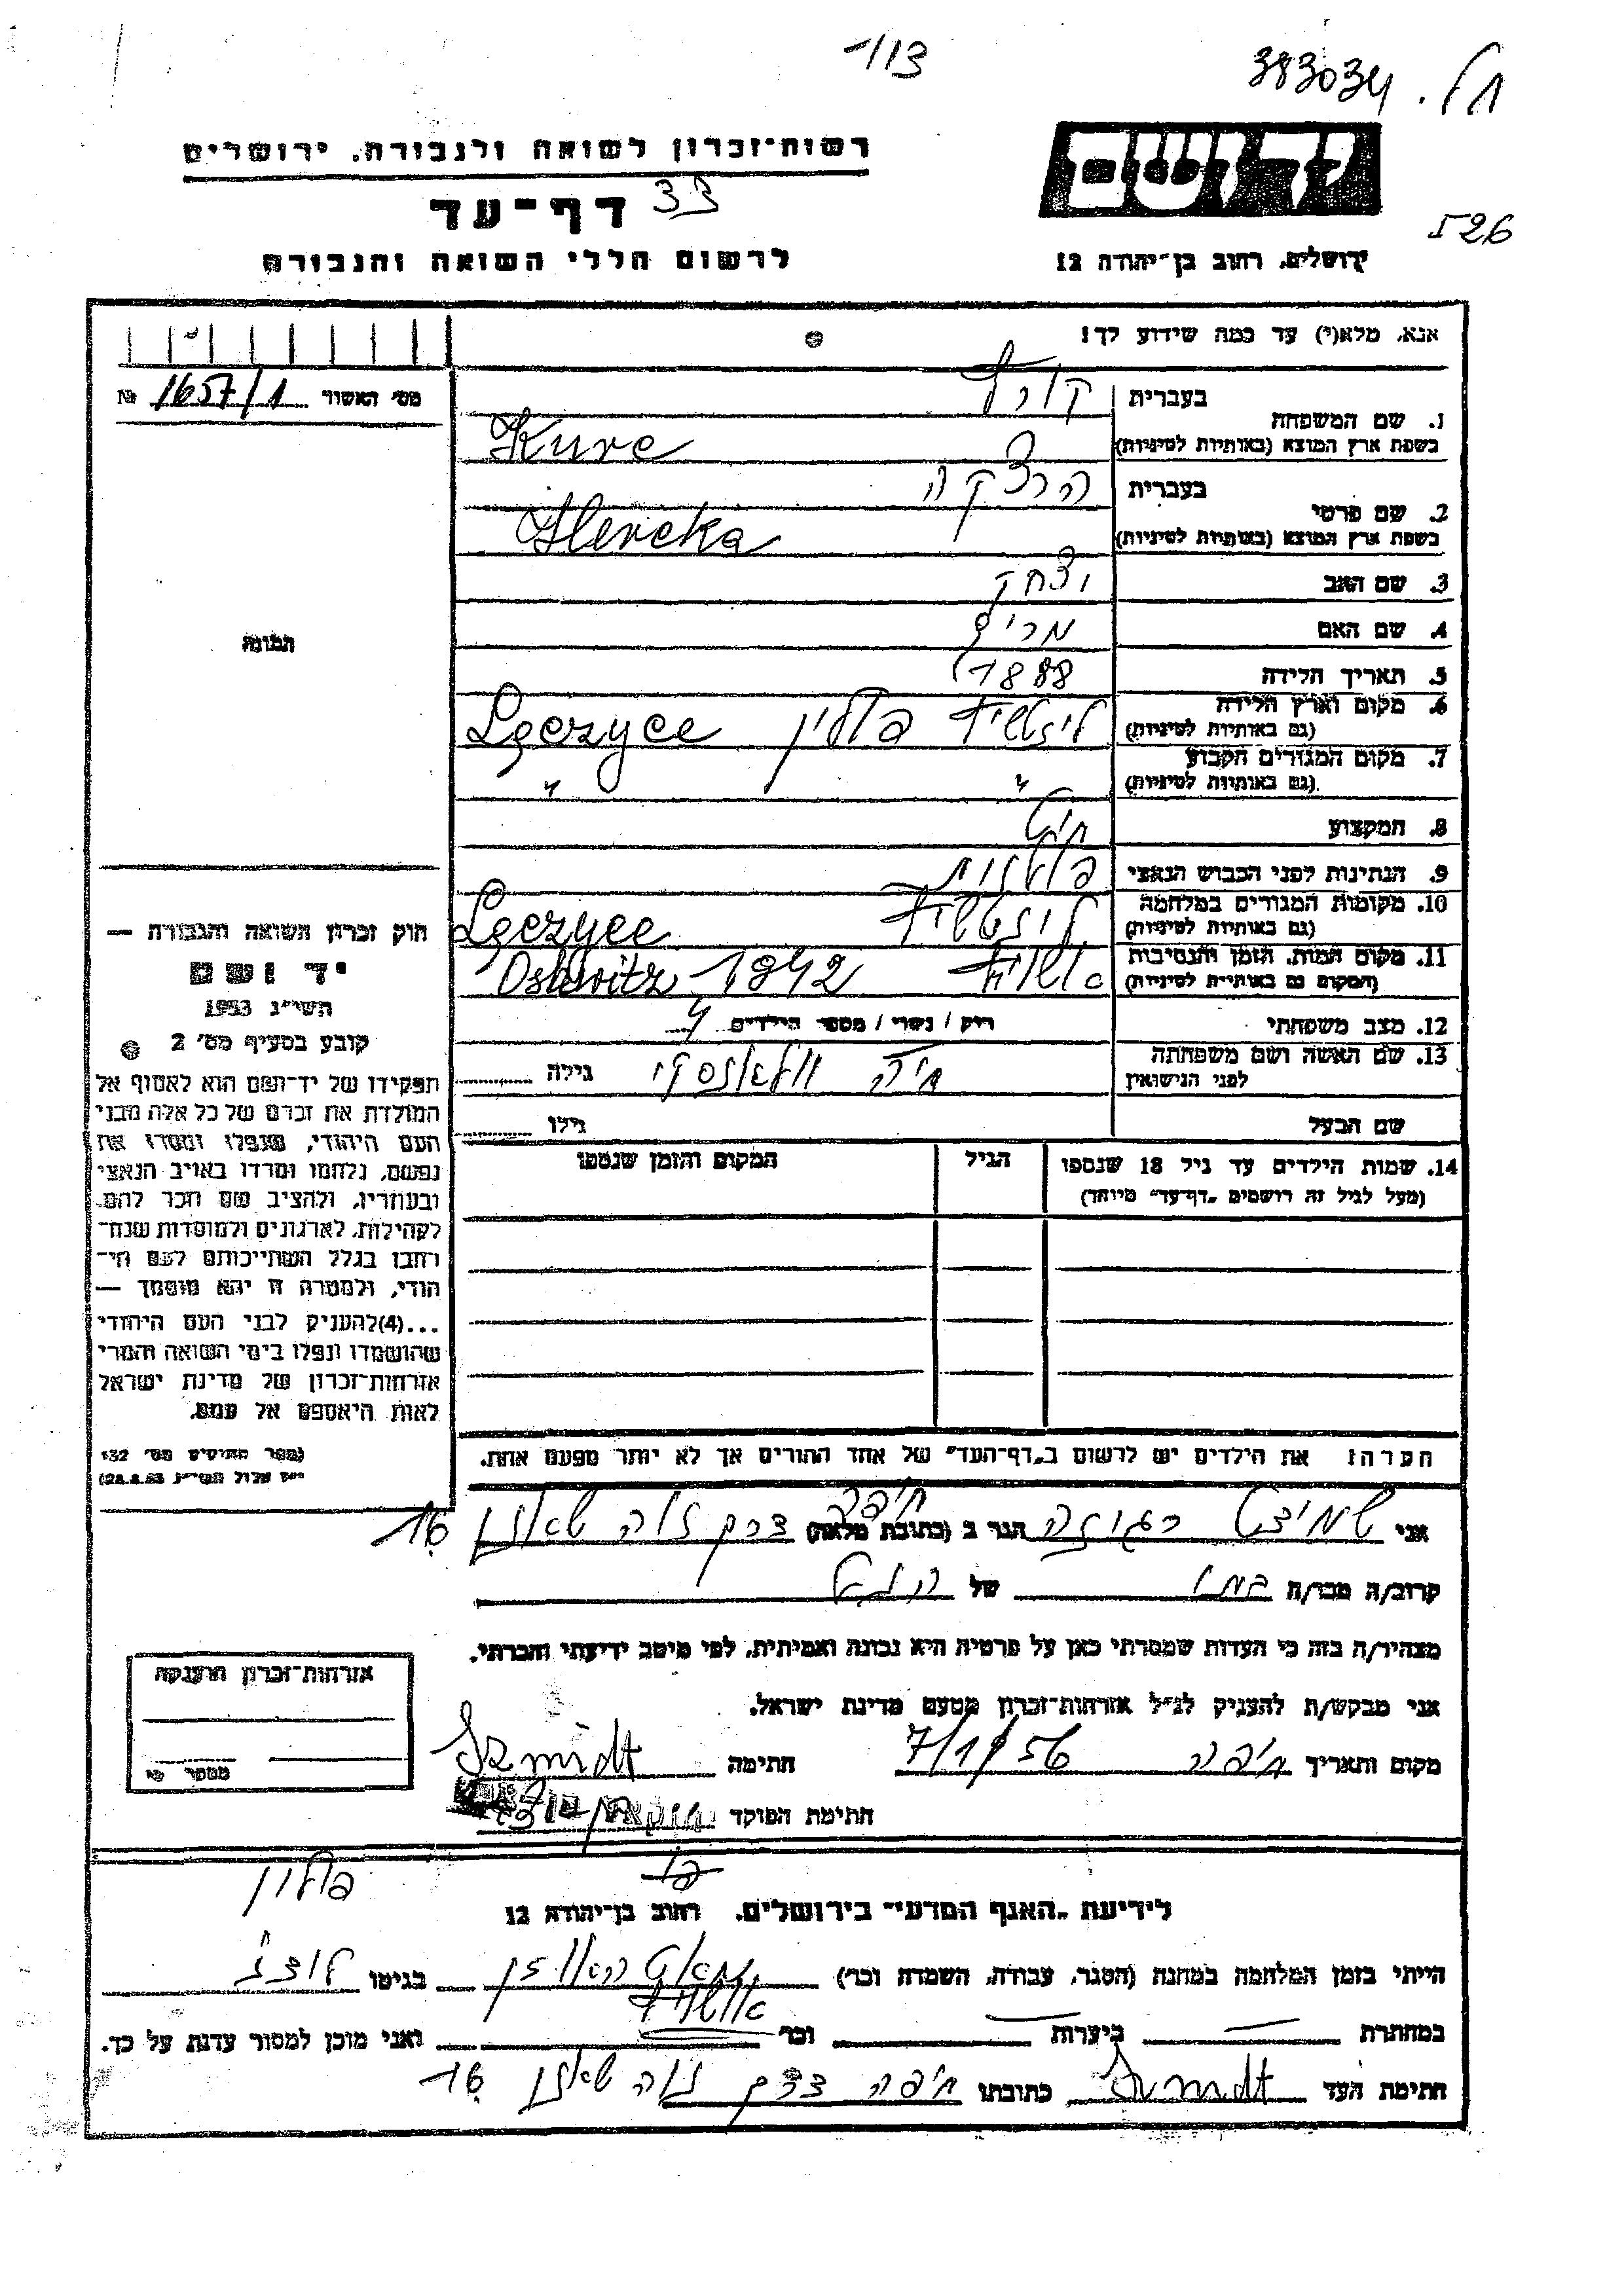 383034
113
526
יד ושם
ירושלים, רחוב בן־יהודה 12
רשות־זכרון לשואה ולגבורה, ירושלים
דף־עד
33
לרשום חללי השואה והגבורה
אנא, מלא(י) עד כמה שידוע לך!
מס׳ האשור 1657/1 №
1. שם המשפחה
בעברית
בשפת ארץ המוצא (באותיות לטיניות)
Kurc
2. שם פרטי
בעברית הרצקה
בשפת ארץ המוצא (באותיות לטיניות)
Hercka
3. שם האב יצחק
4. שם האם מרים
5. תאריך הלידה 1888
6. מקום וארץ הלידה
(גם באותיות לטיניות)
פולין Łęczyce
7. מקום המגורים הקבוע
(גם באותיות לטיניות)
" "
8. המקצוע חייט
9. הנתינות לפני הכבוש הנאצי פולנית
10. מקומות המגורים במלחמה
(גם באותיות לטיניות)
Łęczyce
11. מקום המות, הזמן והנסיבות
(המקום גם באותיות לטיניות)
Oshwitz 1942
12. מצב משפחתי רוק / נשוי / מספר הילדים 4
13. שם האשה ושם משפחתה
לפני הנישואין
חיה
גילה
שם הבעל גילו
14. שמות הילדים עד גיל 18 שנספו
(מעל לגיל זה רושמים „דף־עד״ מיוחד)
הגיל
המקום והזמן שנספו
הערה: את הילדים יש לרשום ב„דף־העד״ של אחד ההורים אך לא יותר מפעם אחת.
התמונה
חוק זכרון השואה והגבורה —
יד ושם
תשי״ג 1953
קובע בסעיף מס׳ 2
תפקידו של יד־ושם הוא לאסוף אל
המולדת את זכרם של כל אלה מבני
העם היהודי, שנפלו ומסרו את
נפשם, נלחמו ומרדו באויב הנאצי
ובעוזריו, ולהציב שם וזכר להם,
לקהילות, לארגונים ולמוסדות שנח־
רבו בגלל השתייכותם לעם הי־
הודי, ולמטרה זו יהא מוסמך —
...(4)להעניק לבני העם היהודי
שהושמדו ונפלו בימי השואה והמרי
אזרחות־זכרון של מדינת ישראל
לאות היאספם אל עמם.
(ספר החוקים מס׳ 132
י״ז אלול תשי״ג 28.8.53)
אני שמידט רגינה הגר ב (כתובת מלאה) חיפה דרך נוה שאנן 16
קרוב/ה מכר/ה בתו של הנ״ל
מצהיר/ה בזה כי העדות שמסרתי כאן על פרטיה היא נכונה ואמיתית, לפי מיטב ידיעתי והכרתי.
אני מבקש/ת להעניק לנ״ל אזרחות־זכרון מטעם מדינת ישראל.
מקום ותאריך חיפה 7/1/56 חתימה Szmidt
חתימת הפוקד
אזרחות־זכרון הוענקה
מספר
פולין
לידיעת „האגף המדעי״ בירושלים, רחוב בן־יהודה 12
הייתי בזמן המלחמה במחנה (הסגר, עבודה, השמדה וכר׳) בגיטו לודג׳
במחתרת — ביערות — וכר׳ ואני מוכן למסור עדות על כך.
חתימת העד Szmidt כתובתו חיפה דרך נוה שאנן 16